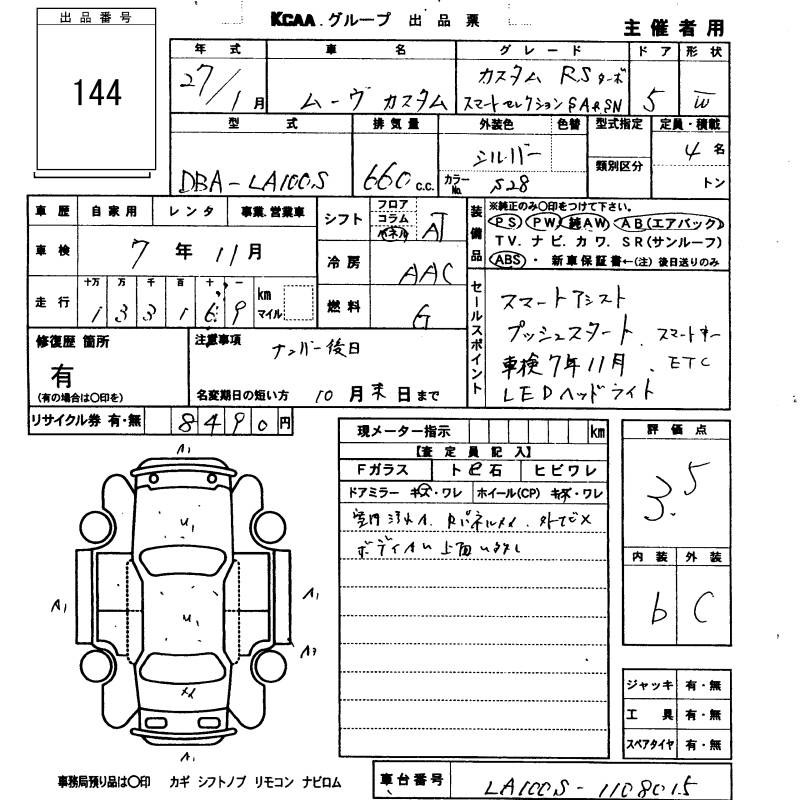 出品番号
144
KCAA グループ 出品票
主催者用
年式 車名 グレード ドア 形状
27/1月 ムーヴ カスタム カスタム RSターボ スマートセレクションSA&SN 5 W
型式 排気量 外装色 色替 型式指定 定員・積載
DBA-LA100S 660 c.c. シルバー カラーNo. S28 類別区分 4名 トン
車歴 自家用 レンタ 事業.営業車
シフト フロア コラム パネル AT
装備品 ※純正のみ○印をつけて下さい。
PS PW 純AW AB(エアバック)
TV.ナビ.カワ.SR(サンルーフ)
ABS・新車保証書←(注)後日送りのみ
車検 7年11月
冷房 AAC
走行 十万 万 千 百 十 一 km マイル
1 3 3 1 6 9
燃料 G
セールスポイント
スマートアシスト
プッシュスタート、スマートキー
車検7年11月、ETC
LEDヘッドライト
修復歴 箇所
有
(有の場合は○印を)
注意事項
ナンバー後日
名変期日の短い方 10月末日まで
リサイクル券 有・無 8490円
現メーター指示 km
【査定員記入】
Fガラス トビ石 ヒビワレ
ドアミラー キズ・ワレ ホイール(CP) キズ・ワレ
室内汚れ、Rパネル
ボディ
評価点
3.5
内装 外装
b C
A1
U1
A1 A1
U1
A3
A1
ジャッキ 有・無
工具 有・無
スペアタイヤ 有・無
事務局預り品は○印 カギ シフトノブ リモコン ナビロム
車台番号 LA100S-1108015